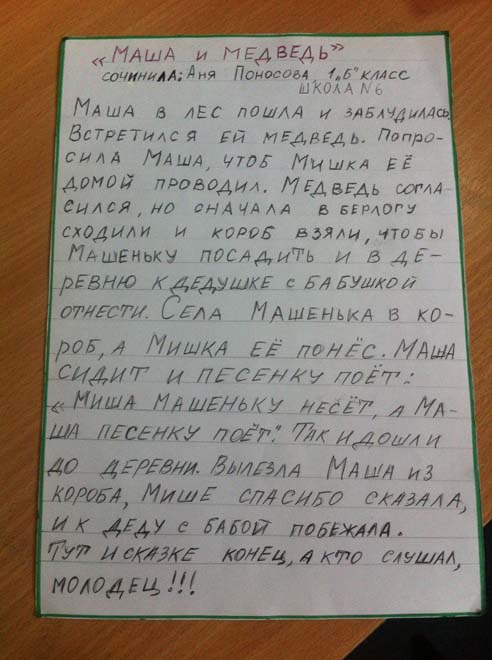 «МАША И МЕДВЕДЬ»
СОЧИНИЛА: АНЯ ПОНОСОВА, 1„Б" КЛАСС
ШКОЛА N6
МАША В ЛЕС ПОШЛА И ЗАБЛУДИЛАСЬ.
ВСТРЕТИЛСЯ ЕЙ МЕДВЕДЬ. ПОПРО-
СИЛА МАША, ЧТОБ МИШКА ЕЁ
ДОМОЙ ПРОВОДИЛ. МЕДВЕДЬ СОГЛА-
СИЛСЯ, НО СНАЧАЛА В БЕРЛОГУ
СХОДИЛИ И КОРОБ ВЗЯЛИ, ЧТОБЫ
МАШЕНЬКУ ПОСАДИТЬ И В ДЕ-
РЕВНЮ К ДЕДУШКЕ С БАБУШКОЙ
ОТНЕСТИ. СЕЛА МАШЕНЬКА В КО-
РОБ, А МИШКА ЕЁ ПОНЁС. МАША
СИДИТ И ПЕСЕНКУ ПОЁТ:
«МИША МАШЕНЬКУ НЕСЁТ, А МА-
ША ПЕСЕНКУ ПОЁТ". ТАК И ДОШЛИ
ДО ДЕРЕВНИ. ВЫЛЕЗЛА МАША ИЗ
КОРОБА, МИШЕ СПАСИБО СКАЗАЛА,
И К ДЕДУ С БАБОЙ ПОБЕЖАЛА.
ТУТ И СКАЗКЕ КОНЕЦ, А КТО СЛУШАЛ,
МОЛОДЕЦ!!!